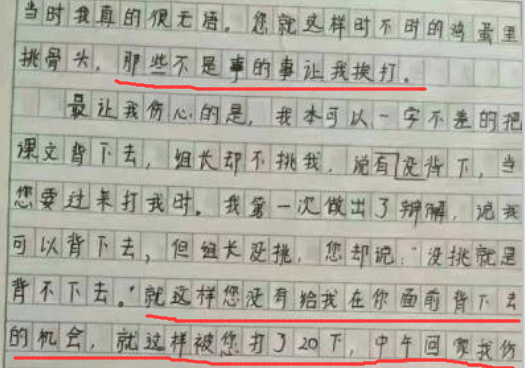 当时我真的很无语。您就这样时不时的鸡蛋里
挑骨头，那些不是事的事让我挨打。
最让我伤心的是，我本可以一字不差的把
课文背下去，组长却不挑我，说有没背下，当
您要过来打我时。我第一次做出了辩解，说我
可以背下去，但组长没挑，您却说："没挑就是
背不下去。"就这样您没有给我在你面前背下去
的机会，就这样被您打了20下，中午回家我伤